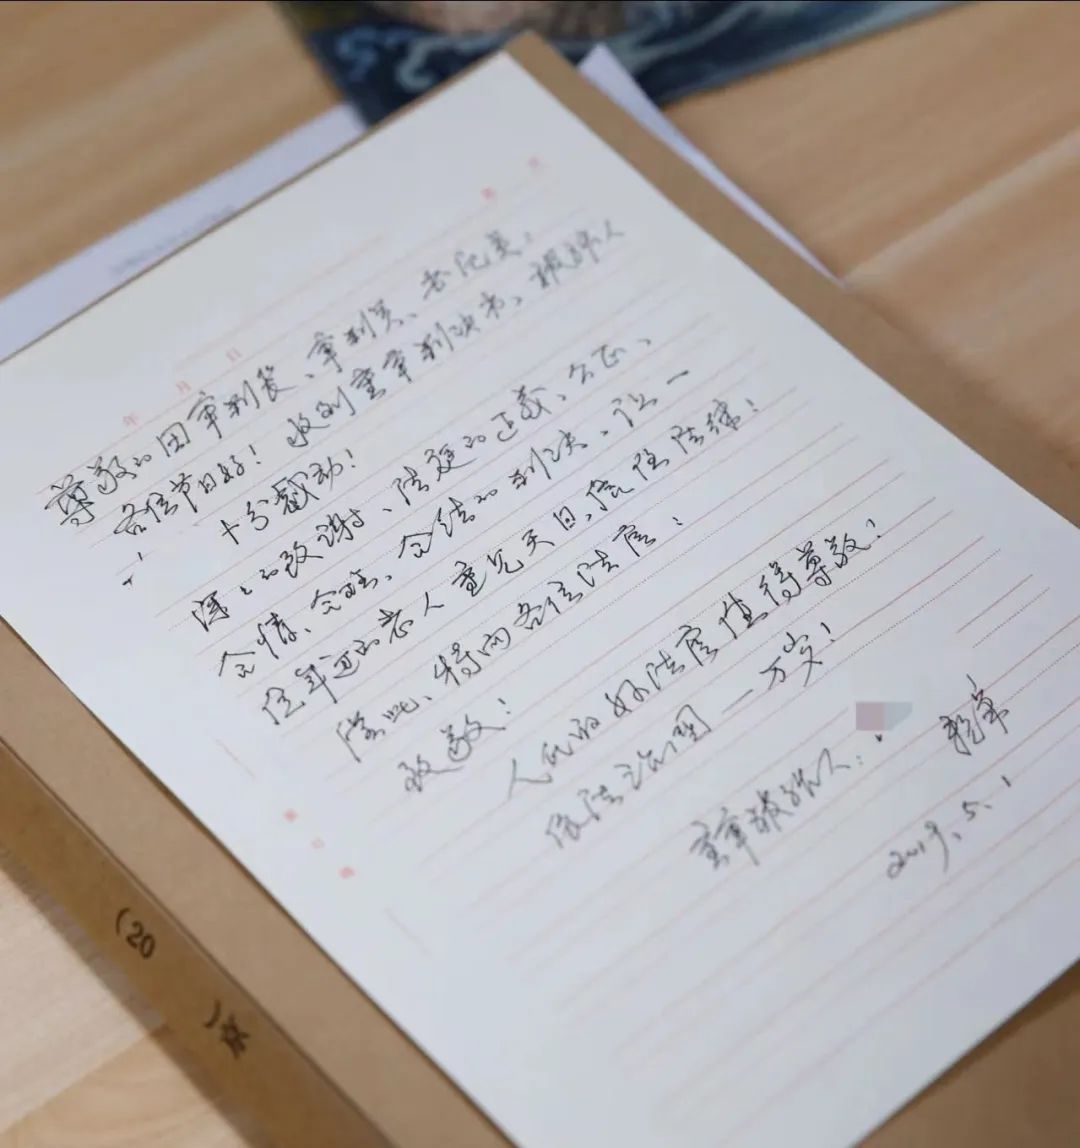 年 月 日
第 页
尊敬的田审判长、审判员、书记员：
各位节日好！收到重审判决书、被诉人
十分感动！
深深的致谢、法庭的正義、公正、
合情、合理、合法的判决、让一
位年迈的老人重见天日、信任法律！
在此、特向各位法官：
致敬！
人民的好法官值得尊敬！
依法治国一万岁！
重审被诉人：
2019.5.1
（20
）京